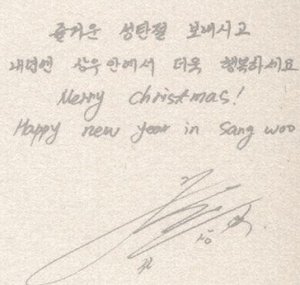 즐거운 성탄절 보내시고
내년엔 상우안에서 더욱 행복하세요
Merry Christmas!
Happy new year in Sang woo